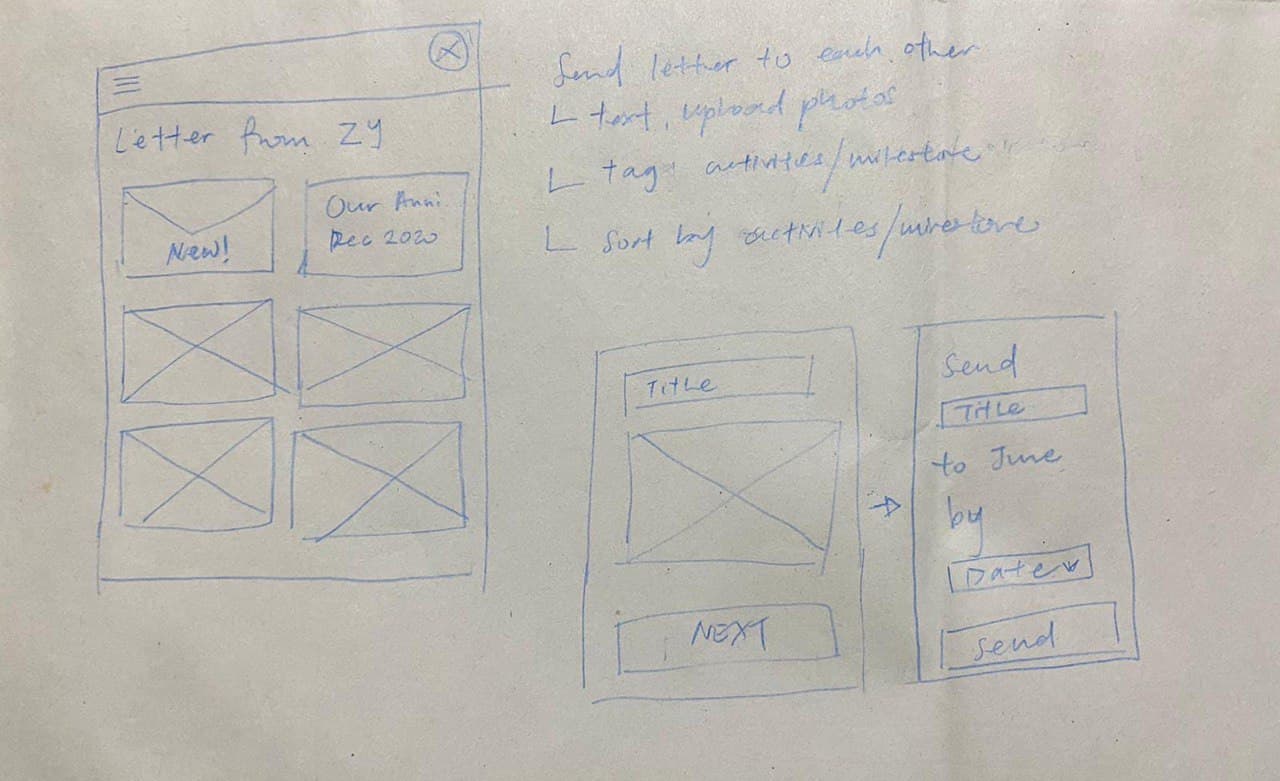 Letter from ZY
New!
Our Anni
Dec 2020
Send letter to each other
text, upload photos
tag activities/milestone
sort by activities/milestone
Title
NEXT
Send
Title
to June
by
Date
Send